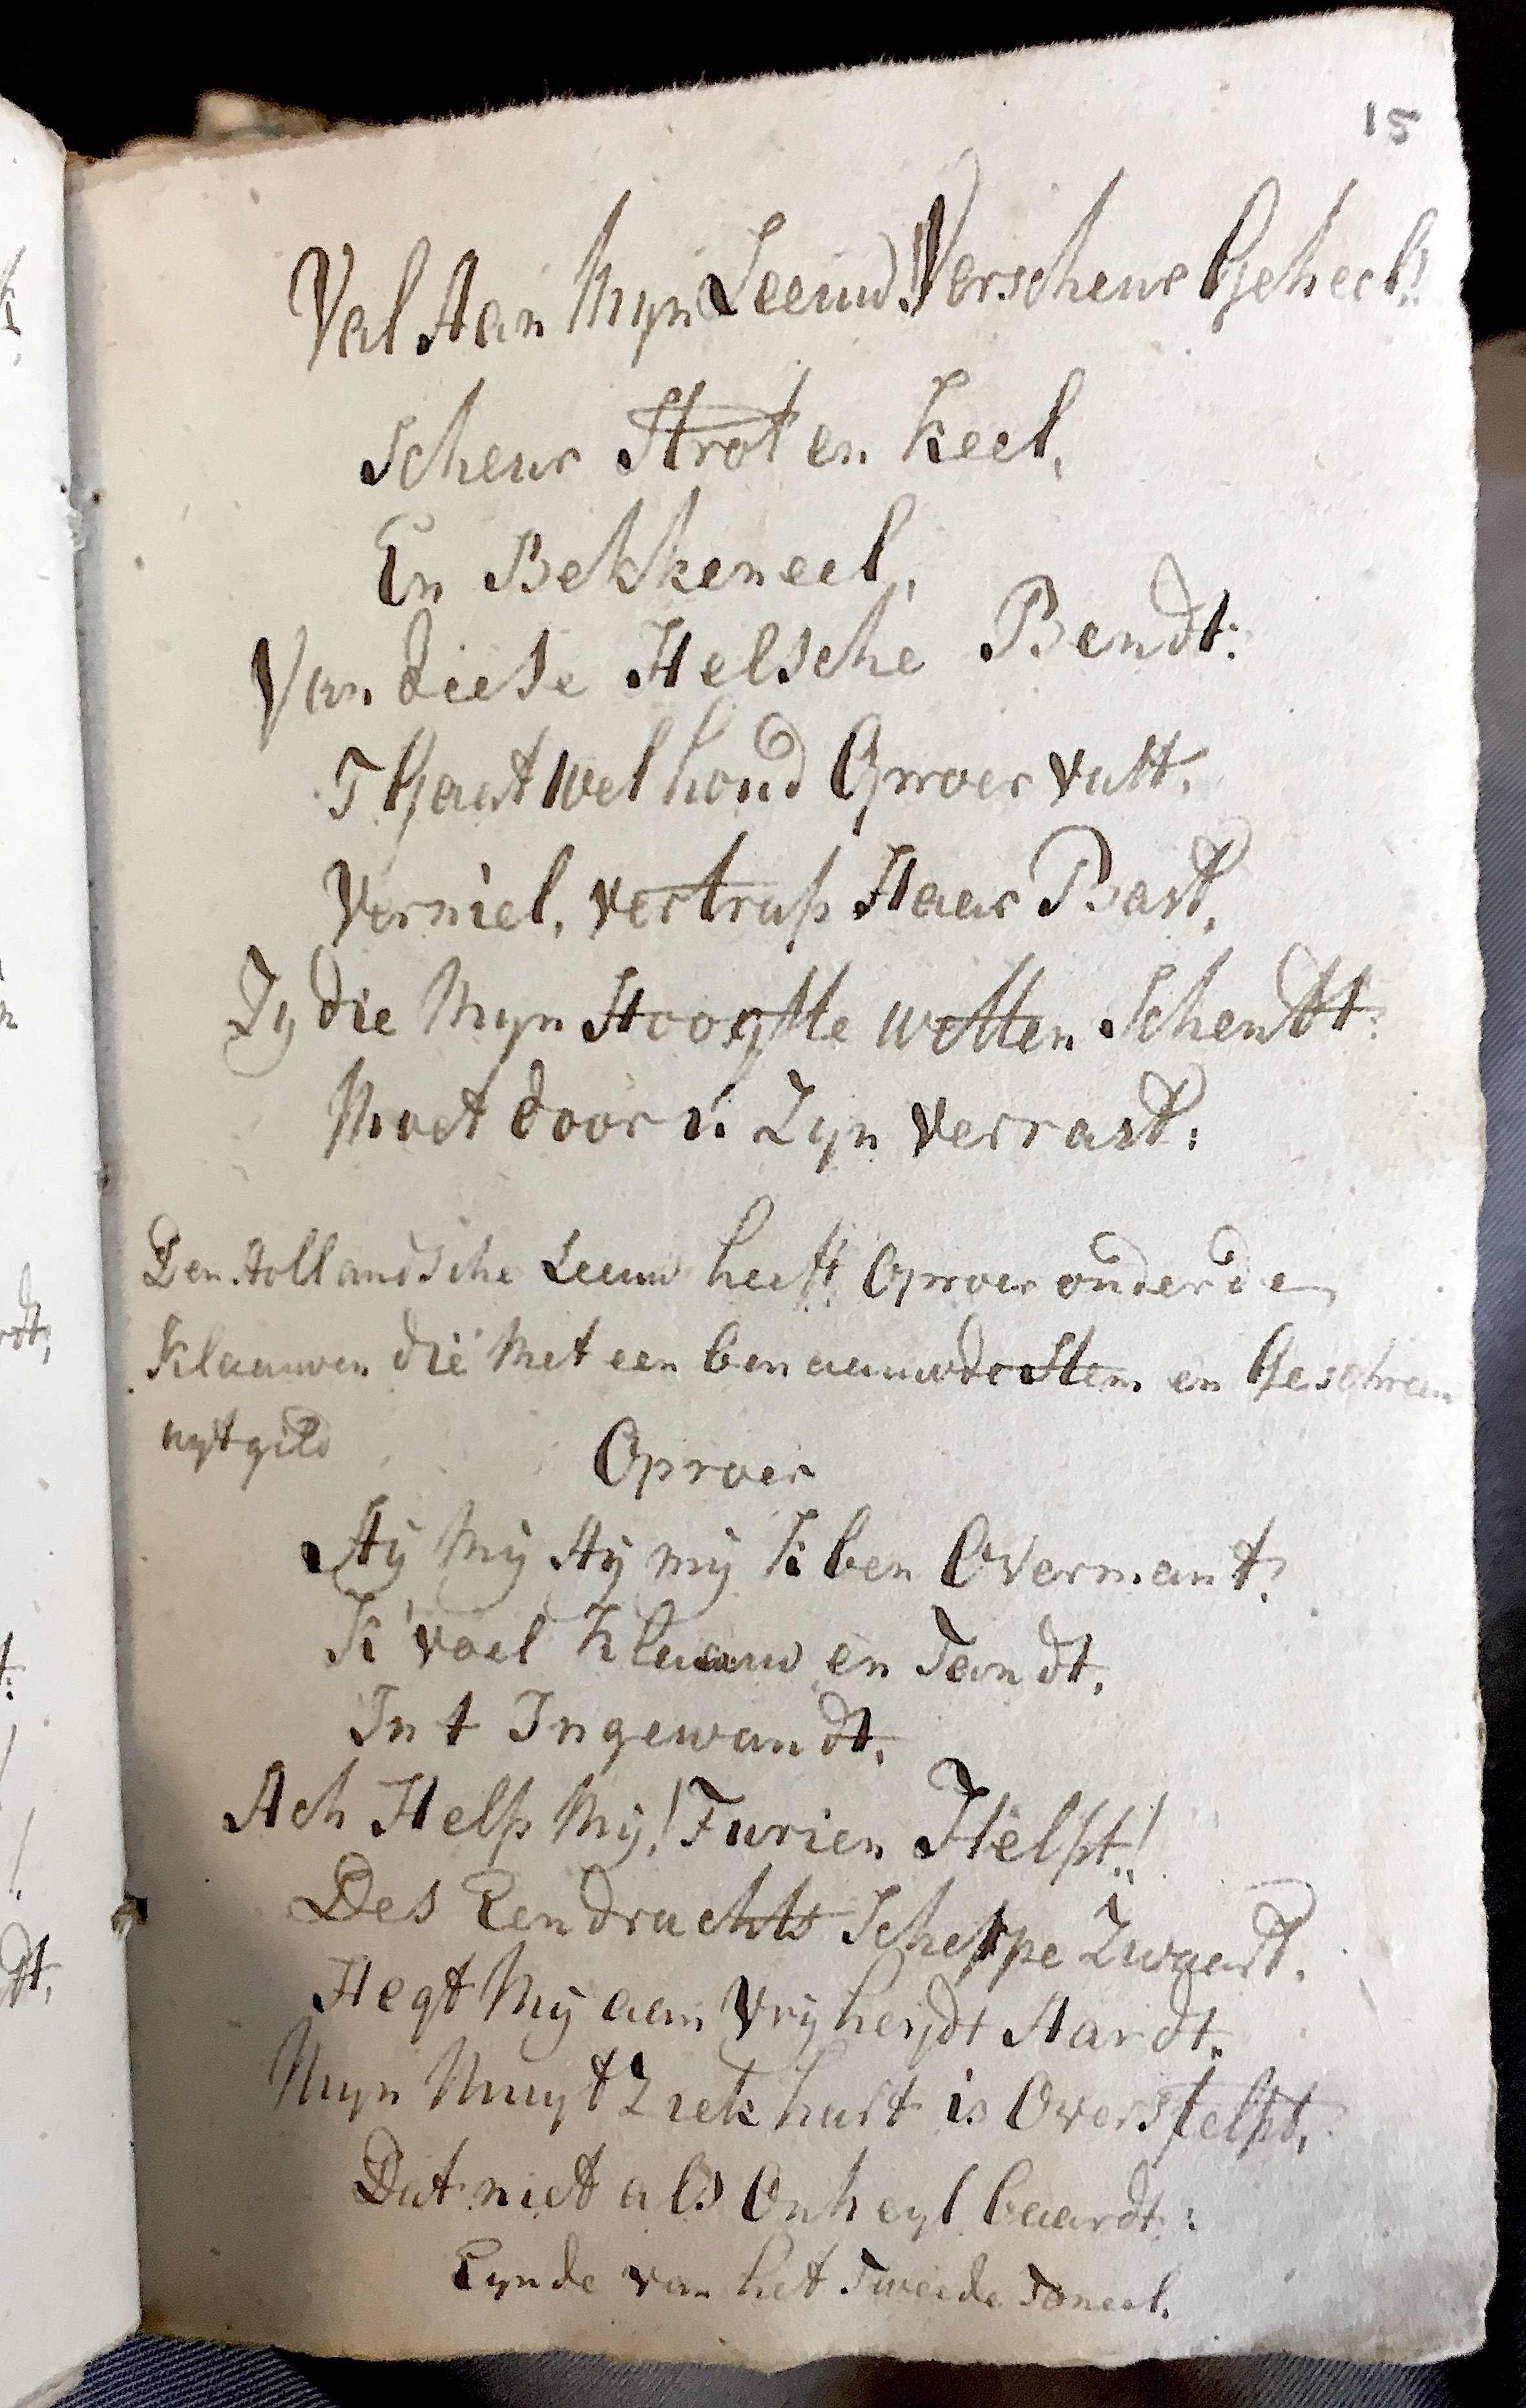 15
Val Aan Myn Leeuw! Verscheur Geheel!
Scheur Strot en Keel,
En Bekkeneel,
Van diese Helsche Bendt:
T Gaat Wel houd Oproer vast,
Verniel, vertrap Haar Bast,
Zy die Myn Hoogtte wotten Schendt:
Moet door u Zyn verrast:
Den Hollandsche Leeuw heeft Oproer onder de
Klaauwen die Met een benaauwde Stem en Geschreeu
uytgild
Oproer
Aÿ Mÿ Aÿ mÿ K ben Overmant!
K'voel Klaauw en Tandt,
In t Ingewandt,
Ach Help Mÿ! Furien Helpt!
Des Eendrachts Scherpe Zwaart,
Hegt Mÿ aan Vrÿheydt Aardt,
Myn Muyt Ziek hart is Overstelpt,
Dat niet als Onheyl baardt:
Eynde van het Tweede Toneel.